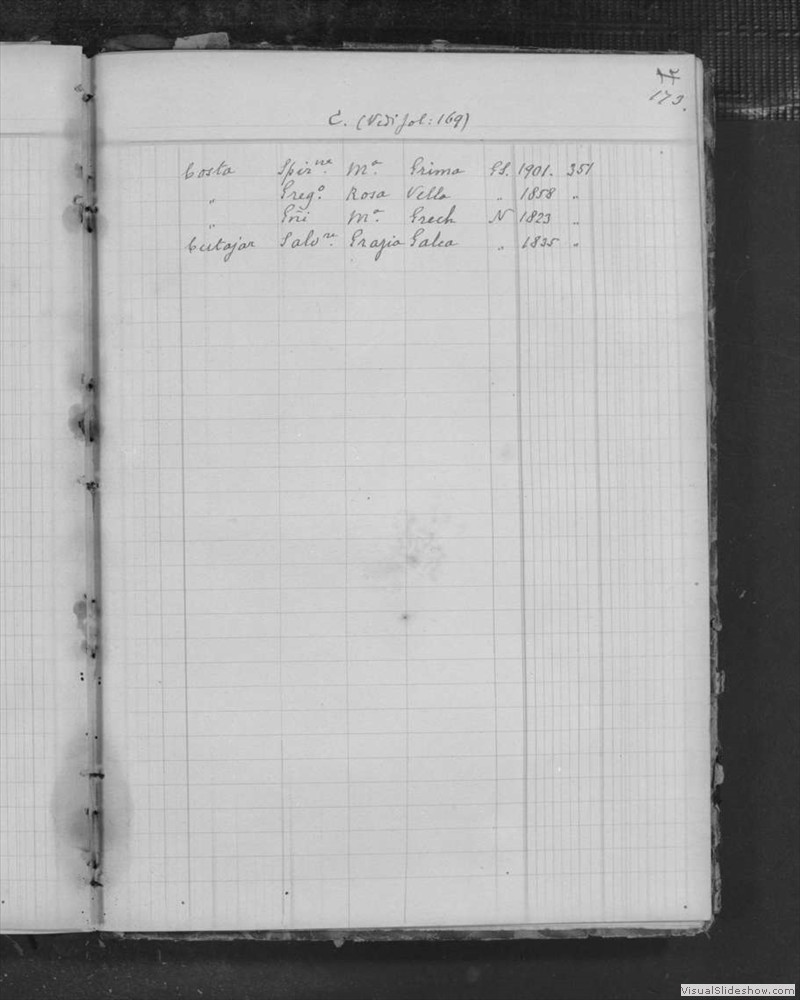 173.
C. (Vedi fol: 169)
Costa Spir.ne M.a Grima GS. 1901. 351
" Greg.o Rosa Vella " 1858 "
" Eñi M.a Grech N 1823 "
Cutajar Salv.re Grazia Galea " 1835 "
VisualSlideshow.com